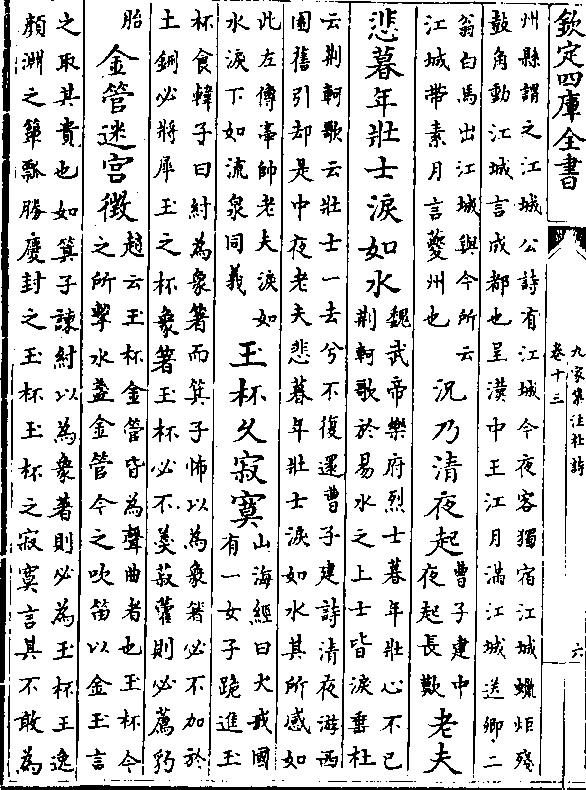 欽定四庫全書
九家集注杜詩
卷十三
六
州縣謂之江城公詩有江城今夜客獨宿江城蠟炬殘
鼓角動江城言成都也呈漢中王江月滿江城送卿二
翁白馬出江城與今所云
江城帶素月言夔州也
況乃清夜起
曹子建中
夜起長歎
老夫
悲暮年壯士淚如水
魏武帝樂府烈士暮年壯心不已
荆軻歌於易水之上士皆淚垂杜
云荆軻歌云壯士一去兮不復還曹子建詩清夜游西
園舊引却是中夜老夫悲暮年壯士淚如水其所感如
此左傳事帥老夫淚如
水淚下如流泉同義
玉杯久寂寞
山海經曰犬戎國
有一女子跪進玉
杯食韓子曰紂為象箸而箕子怖以為象箸必不加於
土鉶必將犀玉之杯象箸玉杯必不羮菽藿則必薦豹
胎
金管迷宮徴
趙云玉杯金管昏為聲曲者也王杯今
之所擊水盞金管今之吹笛以金玉言
之取其貴也如箕子諫紂以為象著則必為玉杯王逸
顔淵之簞瓢勝慶封之玉杯玉杯之寂寞言其不敢為